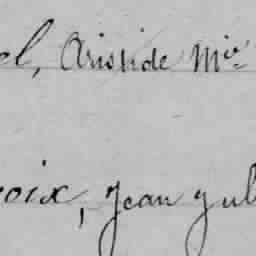 el, Aristide Mie
oix, Jean Jul